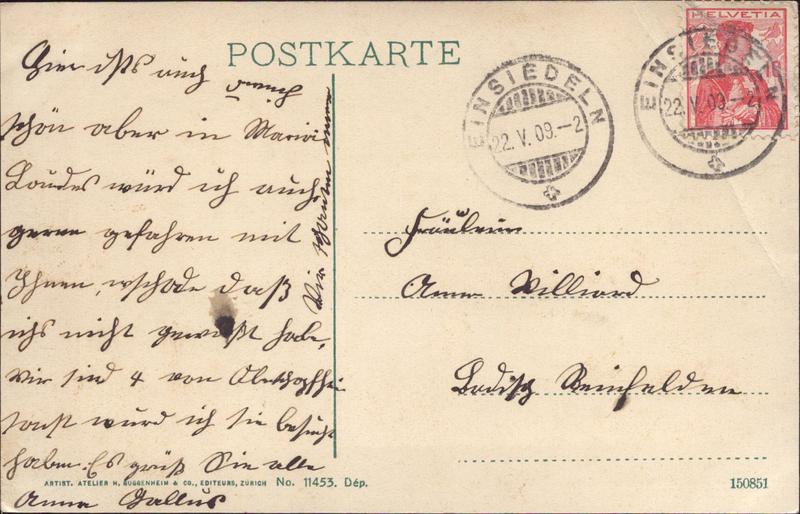 POSTKARTE
HELVETIA
EINSIEDELN
22.V.09.–2
EINSIEDELN
22.V.09.–2
Hier ists auch
schön aber in Maria
Loudes würd ich auch
gerne gefahren mit
Ihnen, wschade daß
ichs nicht gewußt habe,
Wir sind 4 von
sonst würd ich sie besucht
haben. Es grüß Sie alle
Anna Gallus
Wir schauen
Fräulein
Anna Villiard
Badisch Reinfelden
ARTIST. ATELIER H. GUGGENHEIM & CO., EDITEURS, ZÜRICH No. 11453. Dép.
150851